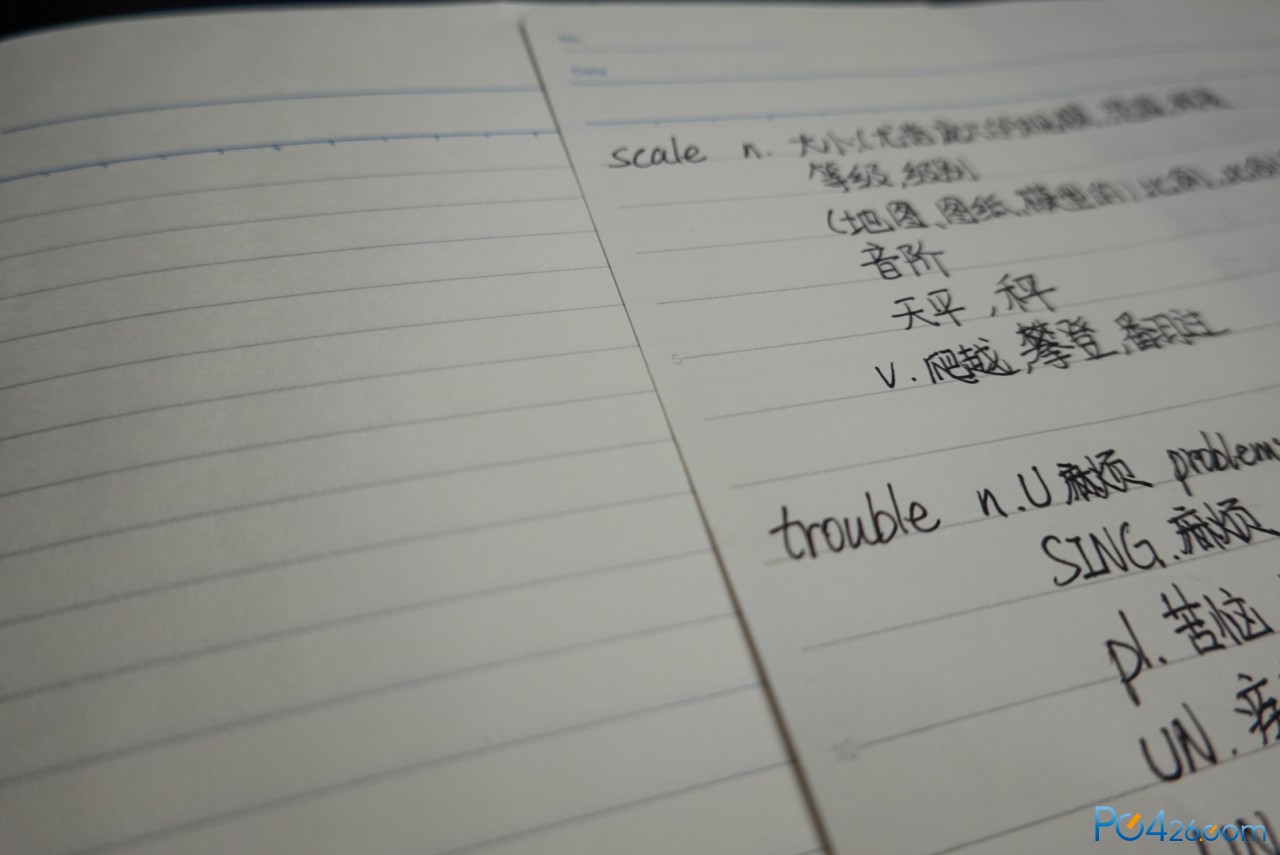 scale n. 大小(尤指庞大的规模,范围,程度
等级,级别
(地图、图纸、模型的)比例,比例
音阶
天平,秤
v. 爬越,攀登,翻过
trouble n. U 麻烦 problem
SING. 麻烦
pl. 苦恼
UN.
UN
PC426.com